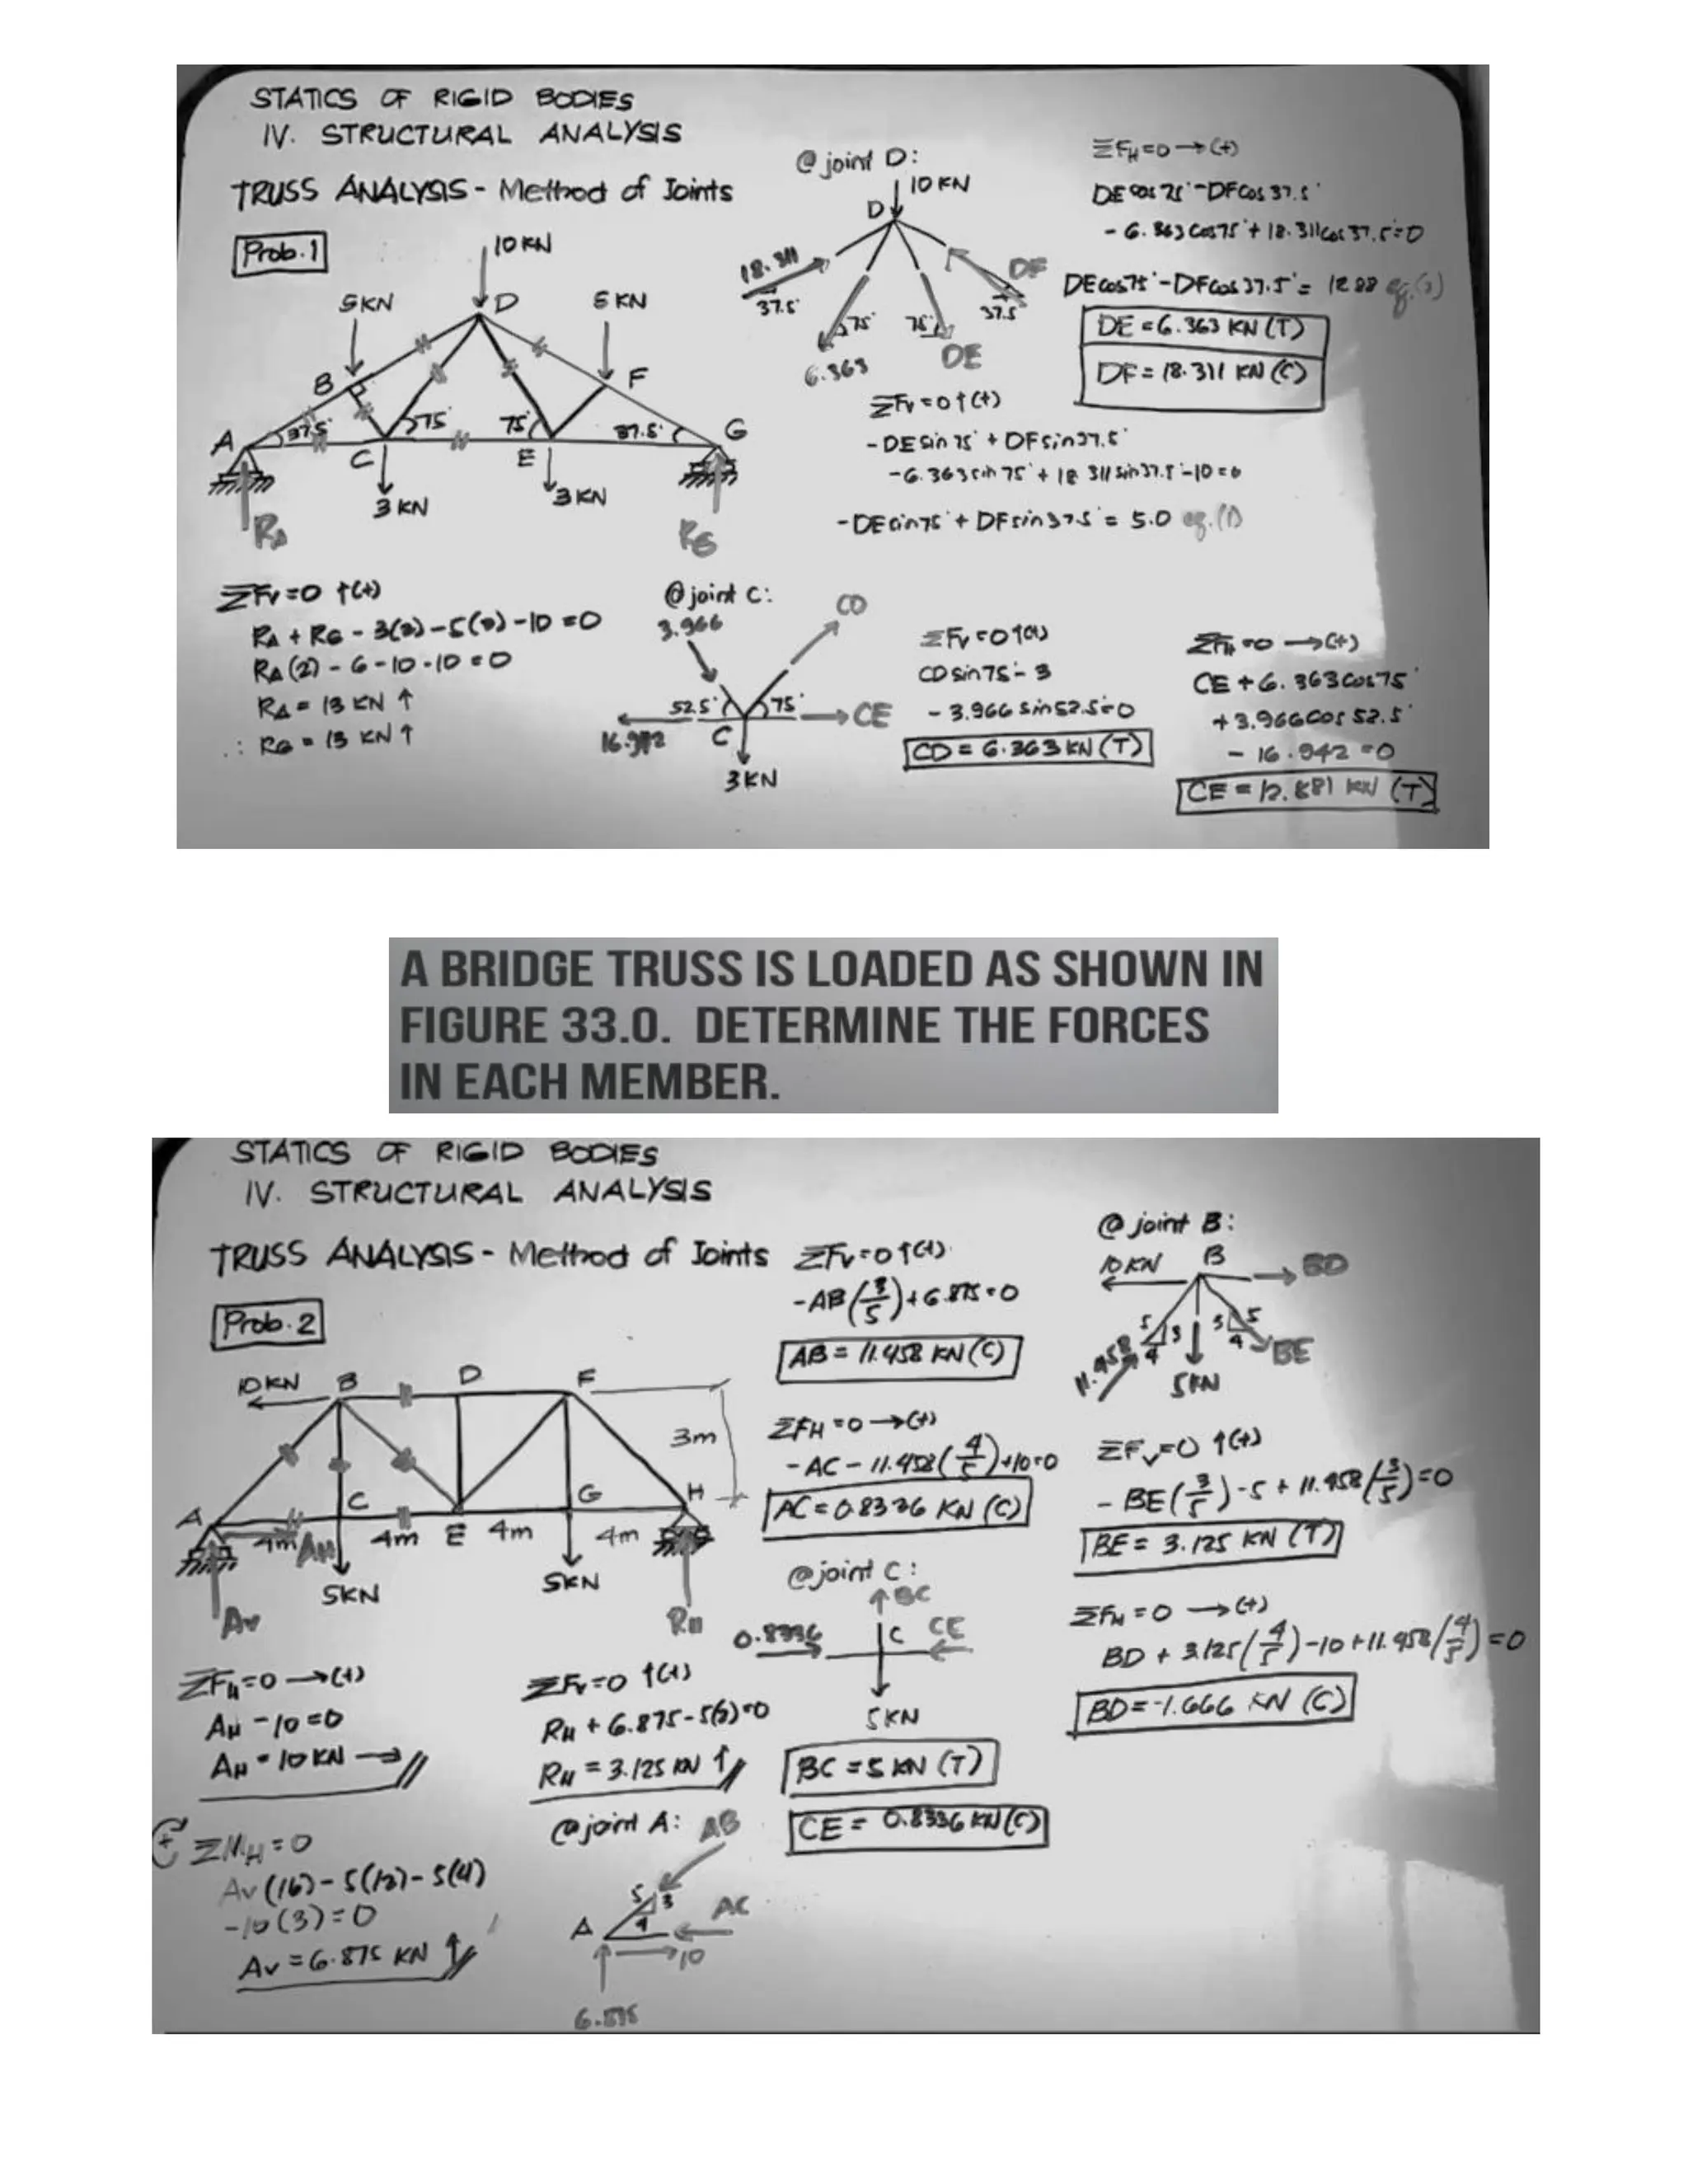 STATICS OF RIGID BODIES
IV. STRUCTURAL ANALYSIS
TRUSS ANALYSIS - Method of Joints
Prob. 1
10 KN
5KN
D
5 KN
B
F
A
37.5°
75°
75°
37.5°
G
C
E
3 KN
3 KN
RA
RG
ΣFv=0 ↑(+)
RA + RG - 3(2) - 5(2) - 10 = 0
RA (2) - 6 - 10 - 10 = 0
RA = 13 KN ↑
∴ RG = 13 KN ↑
@ joint D:
10 KN
D
18.311
37.5°
DF
37.5
75°
75°
6.363
DE
ΣFv=0 ↑(+)
-DE sin 75° + DF sin 37.5°
-6.363 sin 75° + 18.311 sin 37.5 - 10 = 0
-DE sin 75° + DF sin 37.5° = 5.0 eq.(1)
ΣFH=0 → (+)
DE cos 75° - DF cos 37.5°
- 6.363 cos 75° + 18.311 cos 37.5° = 0
DE cos 75° - DF cos 37.5° = 12.88
DE = 6.363 KN (T)
DF = 18.311 KN (C)
@ joint C:
3.966
CD
52.5°
75°
CE
16.942
C
3 KN
ΣFv=0 ↑(+)
CD sin 75° - 3
- 3.966 sin 52.5 = 0
CD = 6.363 KN (T)
ΣFH=0 → (+)
CE + 6.363 cos 75°
+ 3.966 cos 52.5°
- 16.942 = 0
CE = 12.881 KN (T)
A BRIDGE TRUSS IS LOADED AS SHOWN IN
FIGURE 33.0. DETERMINE THE FORCES
IN EACH MEMBER.
STATICS OF RIGID BODIES
IV. STRUCTURAL ANALYSIS
TRUSS ANALYSIS - Method of Joints
Prob. 2
10 KN
B
D
F
3m
A
C
E
G
H
4m
AH
4m
4m
4m
5KN
5KN
Av
RH
ΣFH=0 → (+)
AH - 10 = 0
AH = 10 KN →
ΣMH = 0
Av (16) - 5(12) - 5(4)
- 10 (3) = 0
Av = 6.875 KN ↑
ΣFv=0 ↑(+)
RH + 6.875 - 5(2) = 0
RH = 3.125 KN ↑
@ joint A:
AB
5
3
4
A
AC
10
6.875
ΣFv=0 ↑(+)
-AB (3/5) + 6.875 = 0
AB = 11.458 KN (C)
ΣFH=0 → (+)
- AC - 11.458 (4/5) + 10 = 0
AC = 0.8336 KN (C)
@ joint C:
BC
0.8336
C
CE
5KN
BC = 5 KN (T)
CE = 0.8336 KN (C)
@ joint B:
10 KN
B
BD
5
3
4
3
5
4
11.458
BE
5KN
ΣFv=0 ↑(+)
- BE (3/5) - 5 + 11.458 (3/5) = 0
BE = 3.125 KN (T)
ΣFH=0 → (+)
BD + 3.125 (4/5) - 10 + 11.458 (4/5) = 0
BD = -1.666 KN (C)